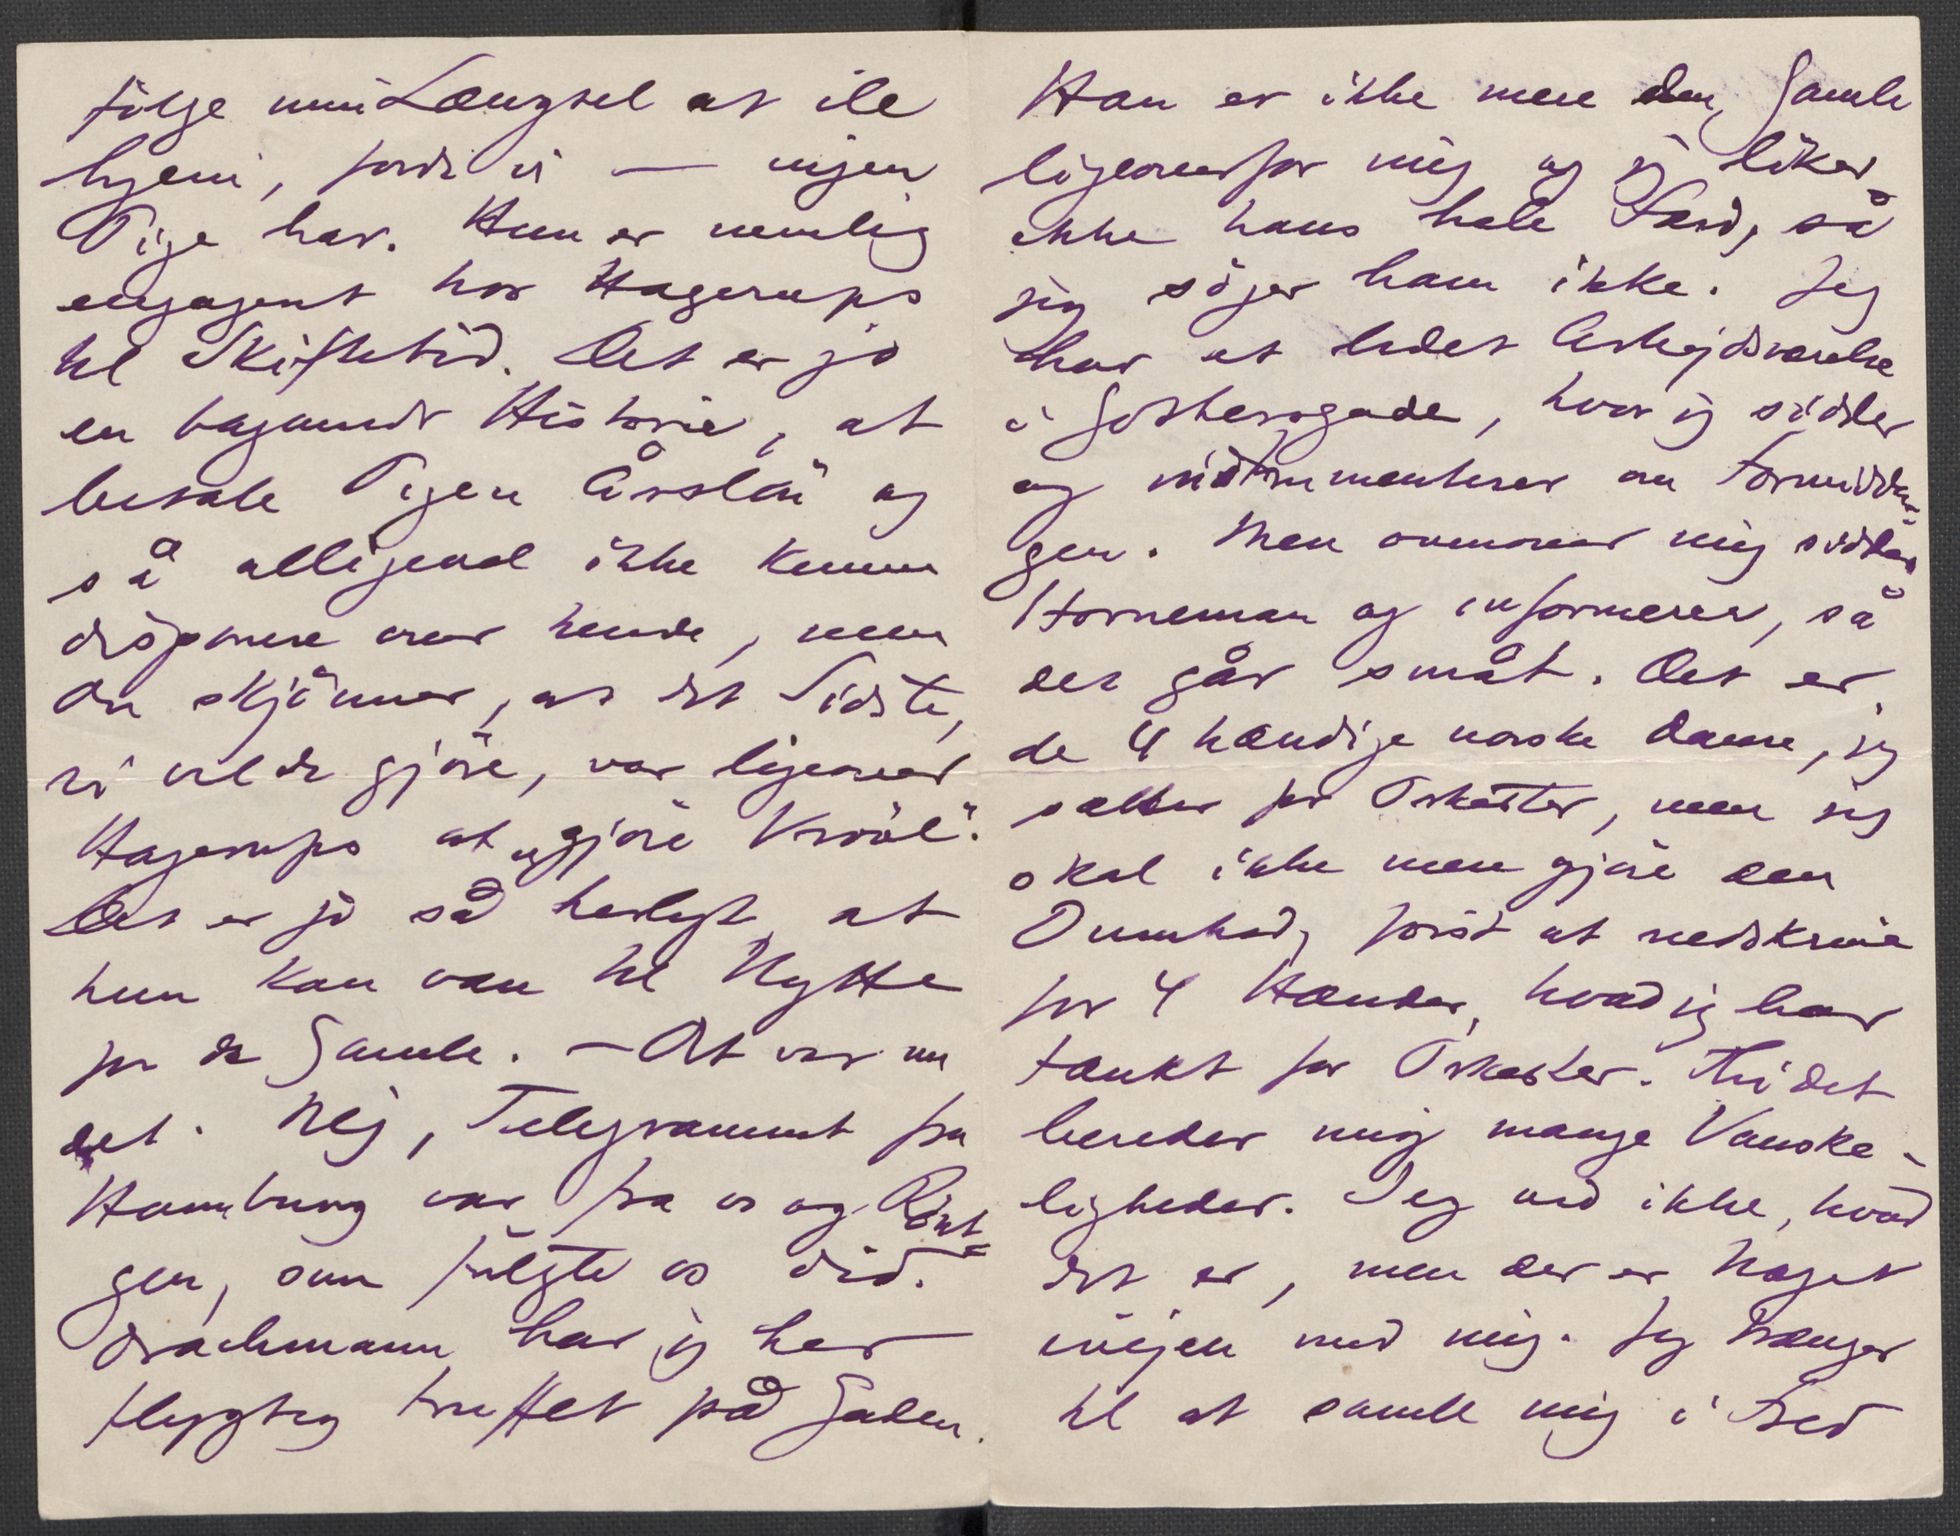 følge min Længsel at ile
hjem, fordi vi — ingen
Pige har. Hun er nemlig
engageret hos Hagerups
til Skiftetid. Det er jo
en bagvendt Historie, at
betale Pigen Årsløn og
så alligevel ikke kunne
disponere over hende, men
Du skjønner, at det Sidste,
vi vilde gjøre, var ligeover
Hagerups at „gjøre Krøll".
Det er jo så herligt, at
hun kan være til Nytte
for de Gamle. — Det var nu
det. Nej, Telegrammet fra
Hamburg var fra os og Rönt=
gen, som fulgte os did.
Drachmann har jeg her
flygtig truffet på Gaden.
Han er ikke mere den Gamle
ligeoverfor mig og jeg liker
ikke hans hele Færd, så
jeg søger ham ikke. Jeg
har et ledet Arbejdsværelse
i Gothersgade, hvor jeg sidder
og instrumenterer om Formidda-
gen. Men ovenover mig sidder
Horneman og informerer, så
det går småt. Det er
de 4 hændige norske Danse, jeg
sætter for Orkester, men jeg
skal ikke mere gjøre den
Dumhed, først at nedskrive
for 4 Hænder, hvad jeg har
tænkt for Orkester. Thi det
bereder mig mange Vanske-
ligheder. Jeg ved ikke, hvad
det er, men der er Noget
ivejen med mig. Jeg trænger
til at samle mig i Fred